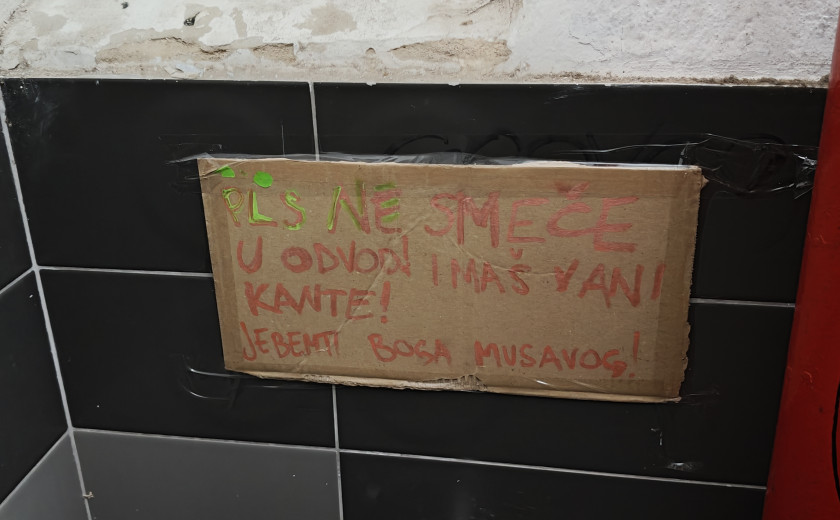 PLS NE SMEČE
U ODVOD! IMAŠ VANI
KANTE!
JEBEMTI BOGA MUSAVOG!